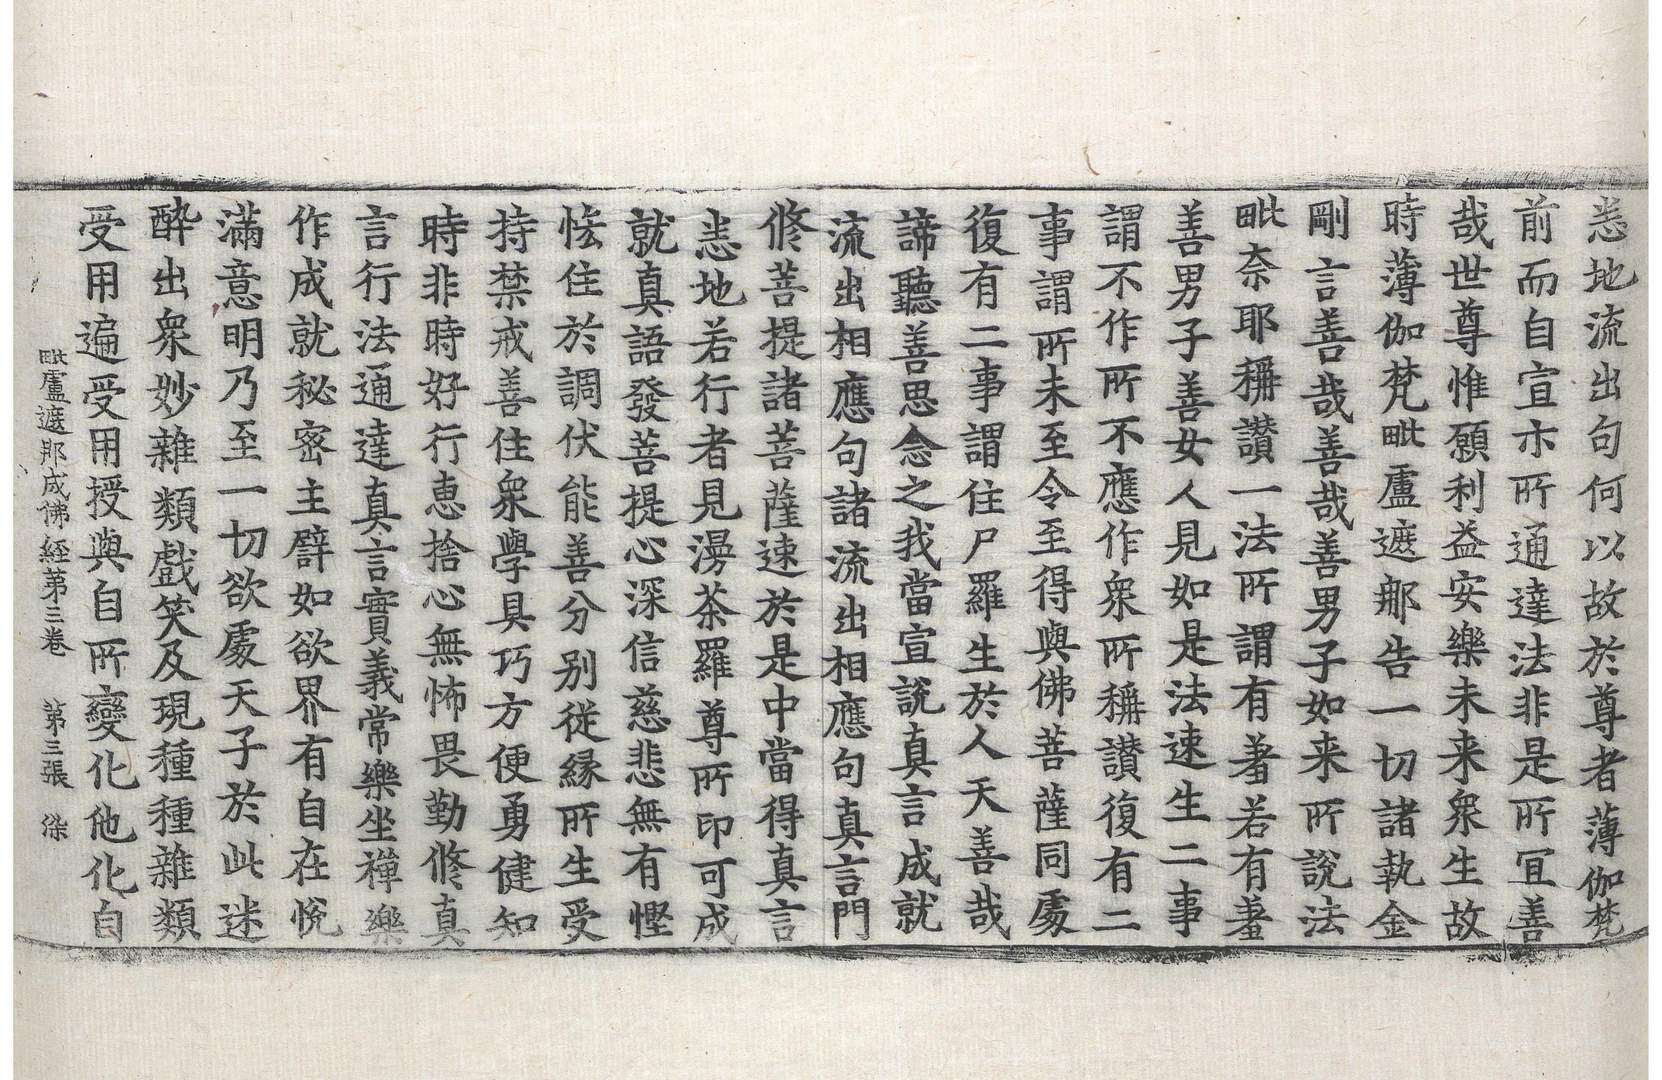 悉地流出句何以故於尊者薄伽梵
前而自宣示所通達法非是所宜善
哉世尊惟願利益安樂未来衆生故
時薄伽梵毗盧遮那告一切諸執金
剛言善哉善哉善男子如来所說法
毗奈耶稱讃一法所謂有羞若有羞
善男子善女人見如是法速生二事
謂不作所不應作衆所稱讃復有二
事謂所未至令至得與佛菩薩同處
復有二事謂住尸羅生於人天善哉
諦聽善思念之我當宣說真言成就
流出相應句諸流出相應句真言門
修菩提諸菩薩速於是中當得真言
悉地若行者見漫荼羅尊所印可成
就真語發菩提心深信慈悲無有慳
悋住於調伏能善分别從縁所生受
持禁戒善住衆學具巧方便勇健知
時非時好行恵捨心無怖畏勤修真
言行法通達真言實義常樂坐禪樂
作成就秘密主譬如欲界有自在悅
滿意明乃至一切欲處天子於此迷
醉出衆妙雜類戲笑及現種種雜類
受用遍受用授與自所變化他化自
毗盧遮那成佛經苐三卷　苐三張　染